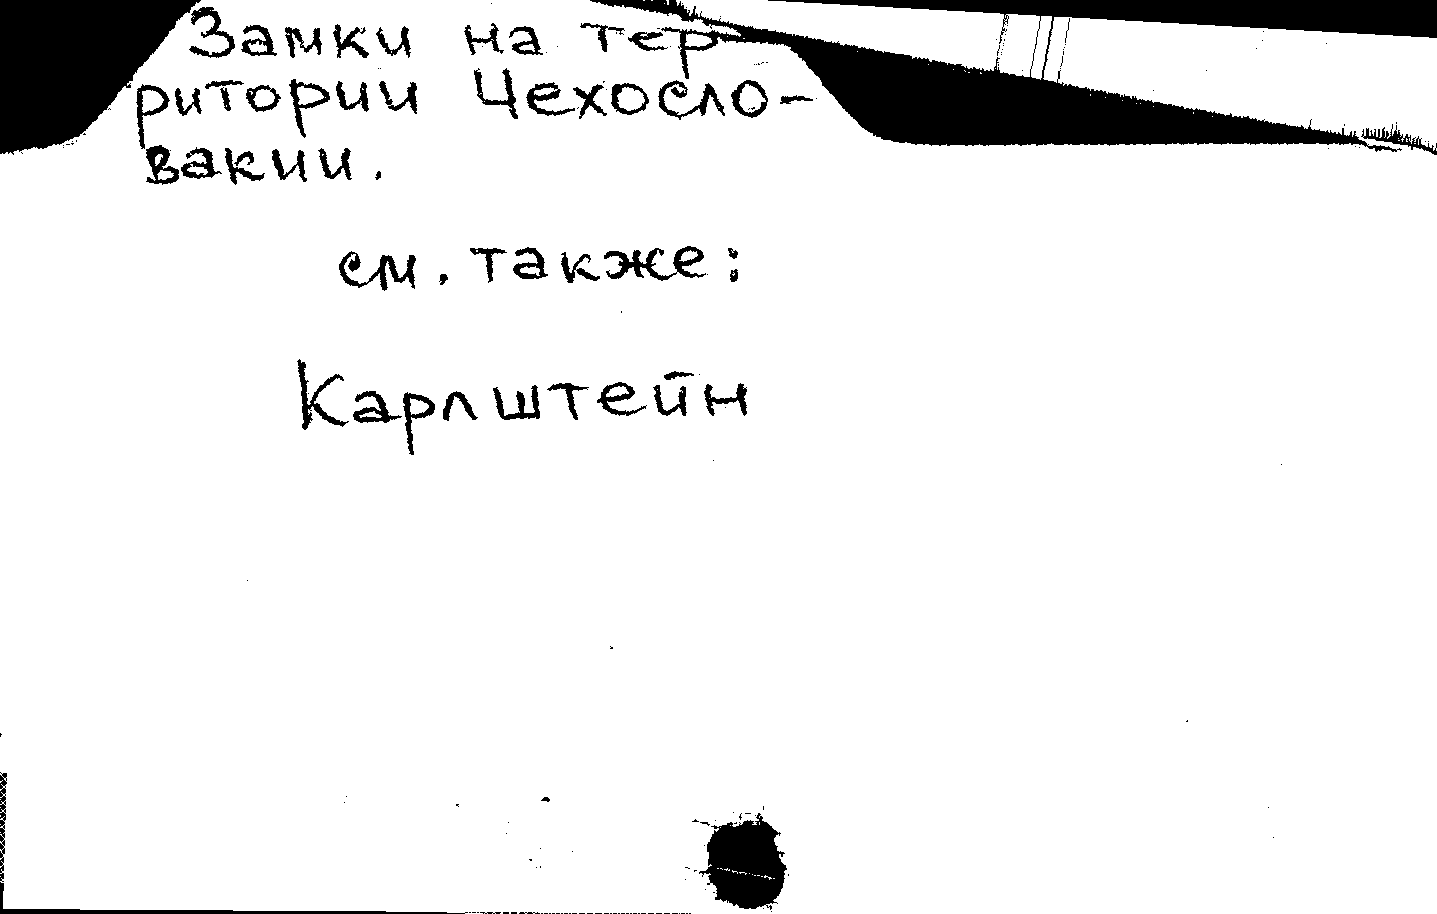 Замки на тер-
ритории Чехосло-
вакии.
см. также:
Карлштейн